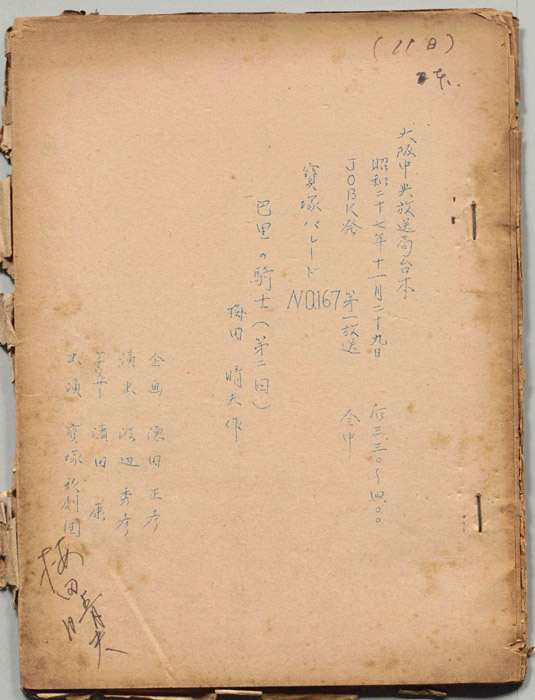 (11日)
大阪中央放送局台本
昭和二十七年十一月二十九日 后三.三〇〜四.〇〇
JOBK発 第一放送 全中
寶塚パレード NO.167
巴里の騎士(第二回)
梅田 晴夫作
企画 演田 正彦
演出 渡辺 秀彦
濱田 康
出演 寶塚歌劇団
梅田晴夫